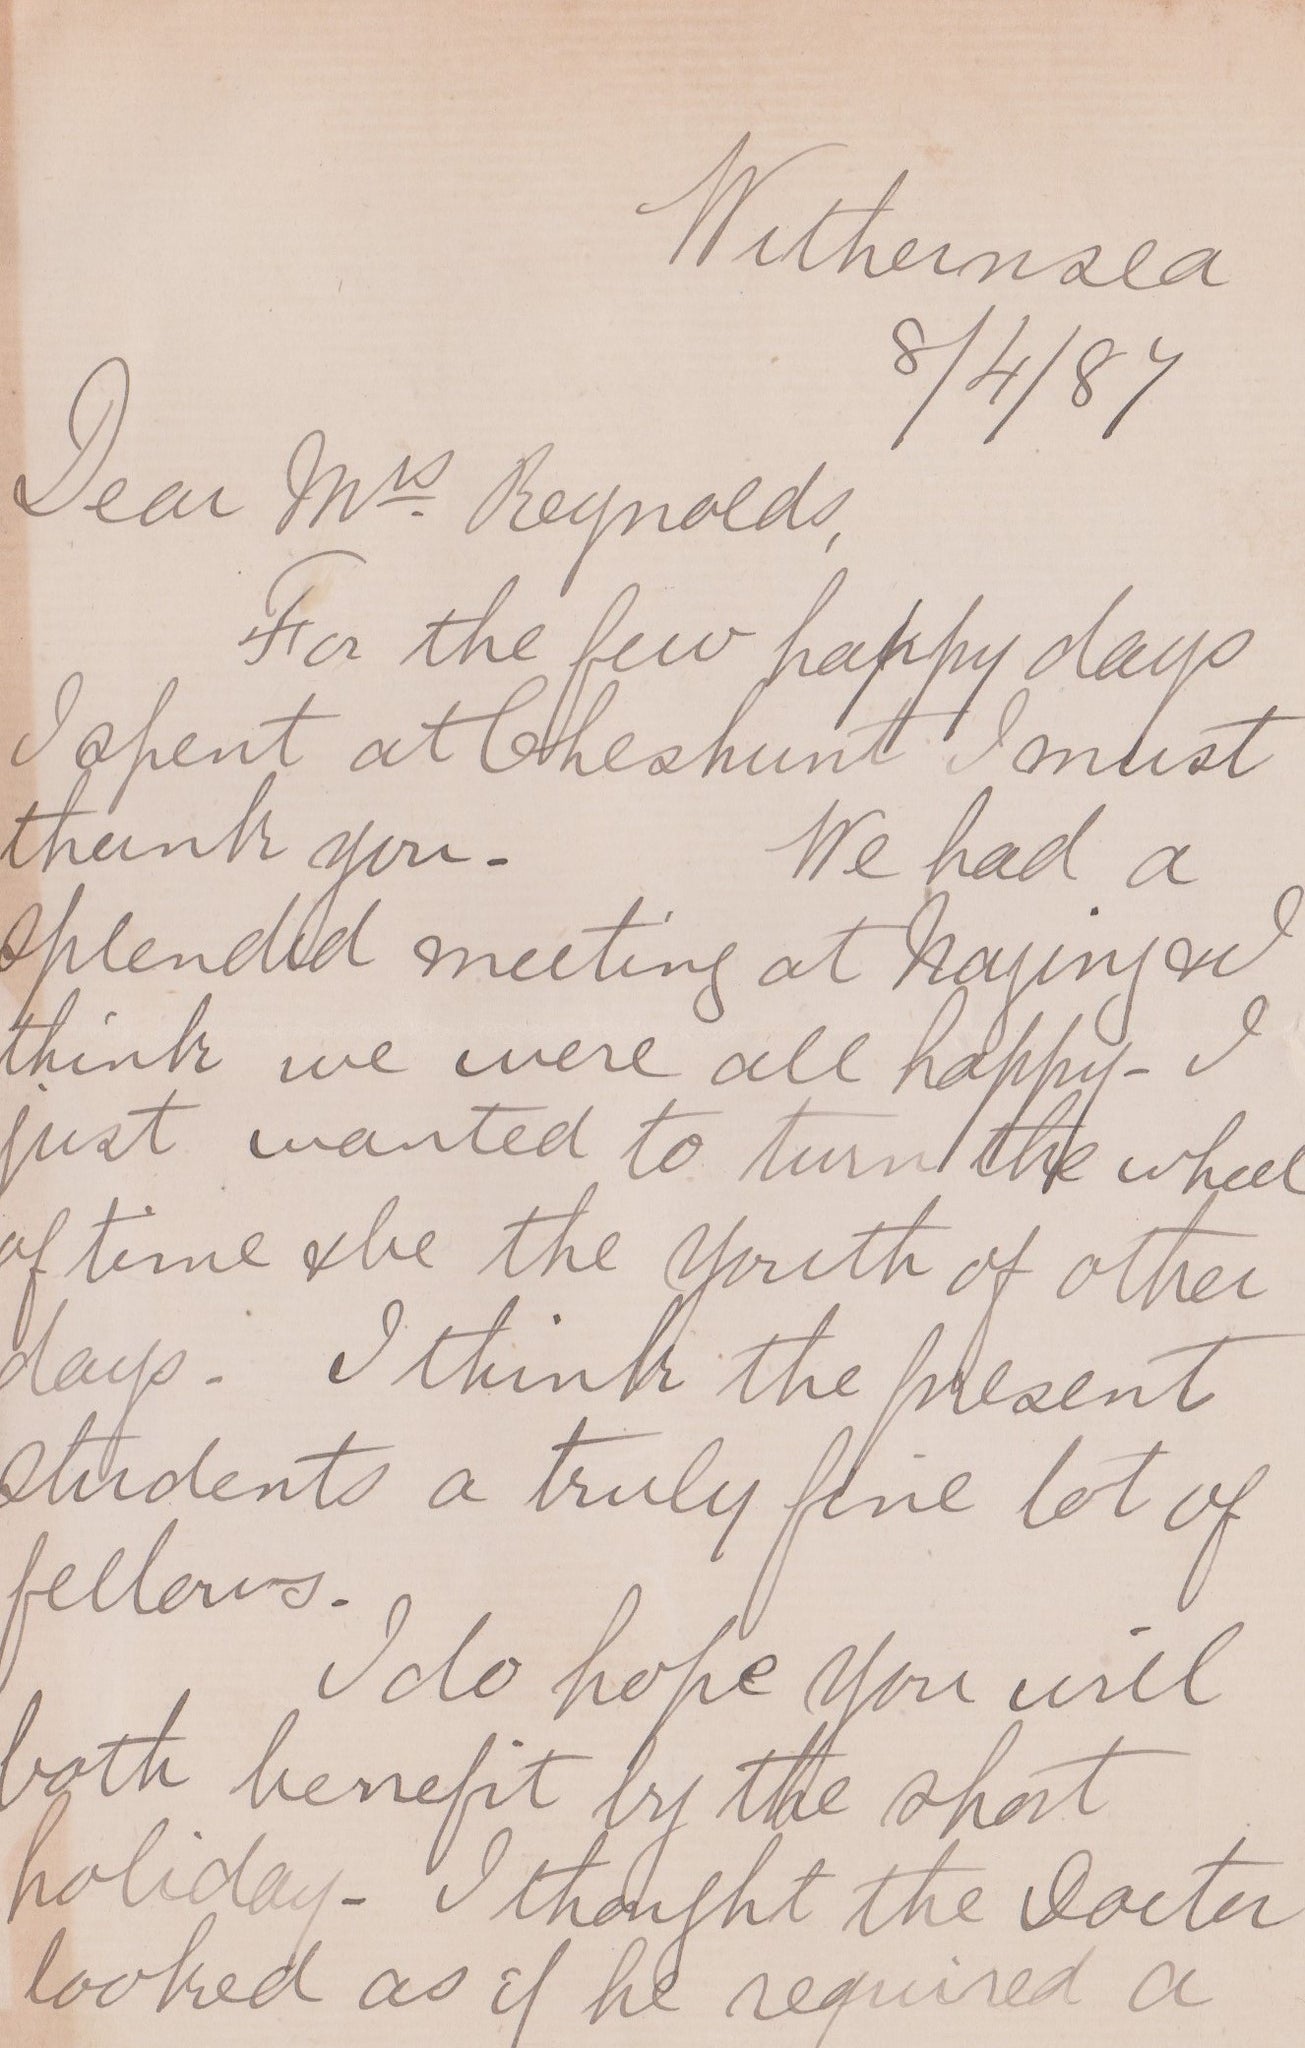 Withernsea
8/4/87
Dear Mrs. Reynolds,
For the few happy days
I spent at Cheshunt I must
thank you - We had a
splendid meeting at Nazing & I
think we were all happy - I
just wanted to turn the wheel
of time & be the youth of other
days - I think the present
students a truly fine lot of
fellows -
I do hope you will
both benefit by the short
holiday - I thought the Doctor
looked as if he required a